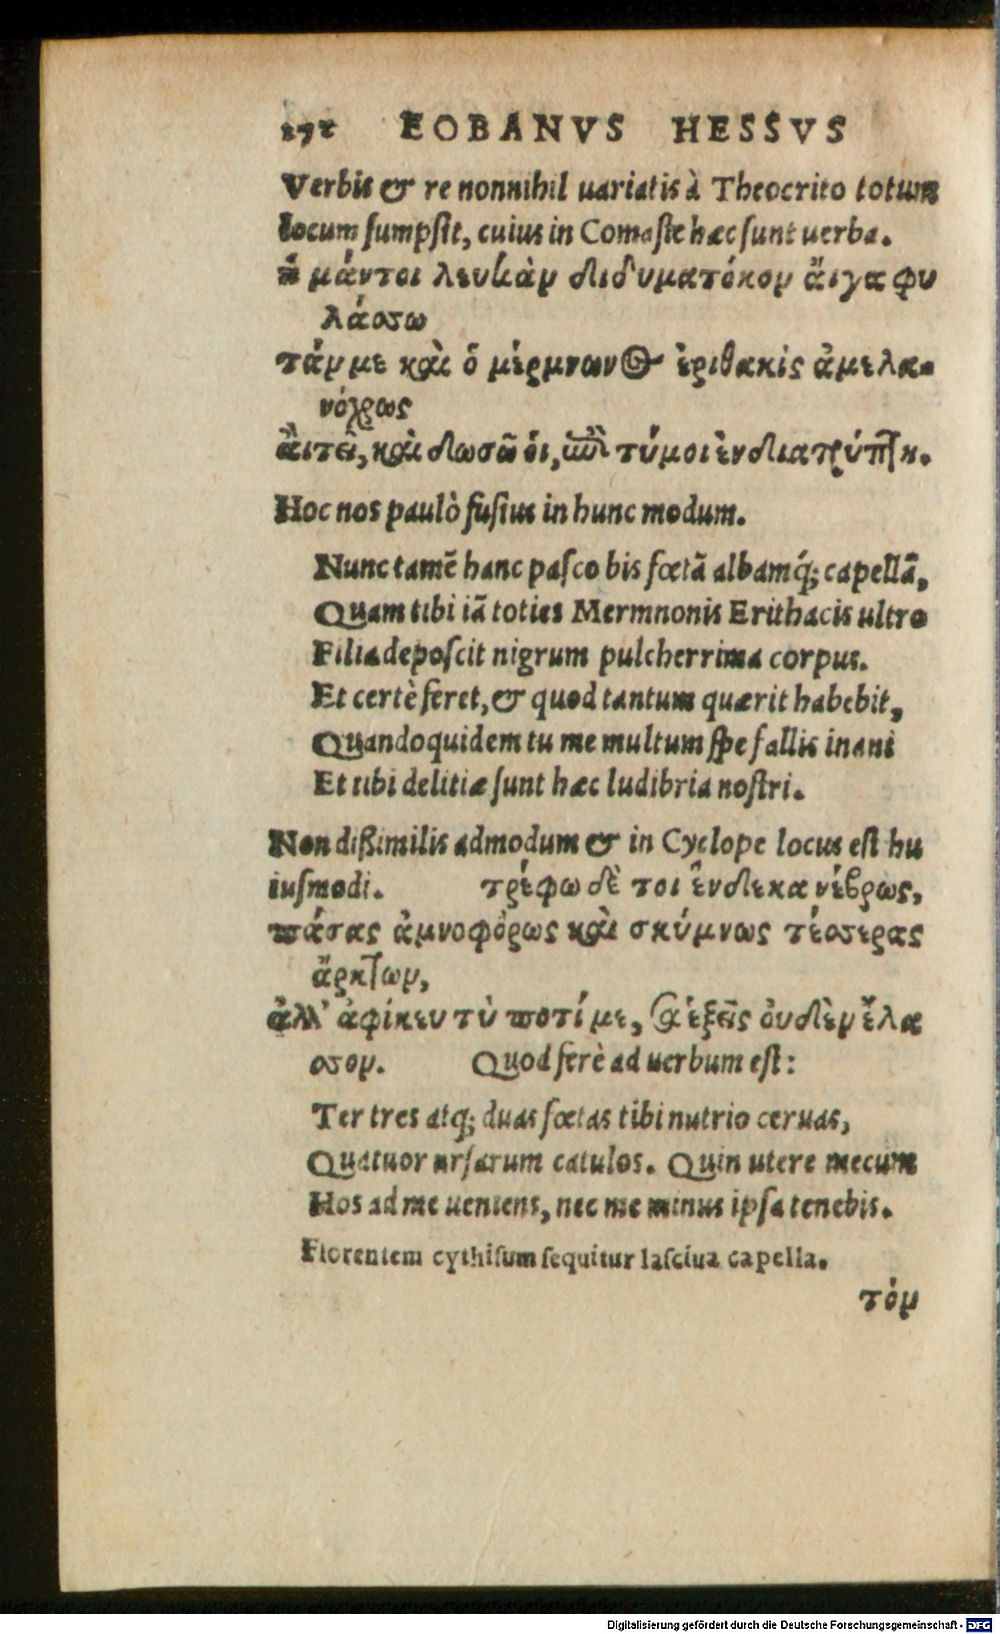 272 EOBANVS HESSVS
Verbis & re nonnihil uariatis à Theocrito totum
locum sumpsit, cuius in Comaste hæc sunt uerba.
ἦ μάντοι λευκὰν διδυματόκον ἄιγα φυ
λάσσω
τάν με καὶ ὁ μέρμνωνος ἐριθακὶς ἁ μελα-
νόχρως
ἂιτεῖ, καὶ δωσῶ ὁι, ἐπεὶ τύ μοι ἐνδιαθρύπτῃ.
Hoc nos paulò fusius in hunc modum.
Nunc tamē hanc pasco bis fœtā albamq́; capellā,
Quam tibi iā toties Mermnonis Erithacis ultro
Filia deposcit nigrum pulcherrima corpus.
Et certè feret, & quod tantum quærit habebit,
Quandoquidem tu me multum spe fallis inani
Et tibi delitiæ sunt hæc ludibria nostri.
Non dißimilis admodum & in Cyclope locus est hu
iusmodi. τρέφω δέ τοι ἕνδεκα νέβρως,
πάσας ἀμνοφόρως καὶ σκύμνως τέσσερας
ἄρκτων,
ἀλλ' ἀφίκευ τὺ ποτί με, καὶ ἑξεῖς ὀυδὲν ἔλα
σσον. Quod ferè ad uerbum est:
Ter tres atq; duas fœtas tibi nutrio ceruas,
Quatuor ursarum catulos. Quin utere mecum
Hos ad me ueniens, nec me minus ipsa tenebis.
Florentem cythisum sequitur lasciua capella.
τὸν
Digitalisierung gefördert durch die Deutsche Forschungsgemeinschaft - DFG